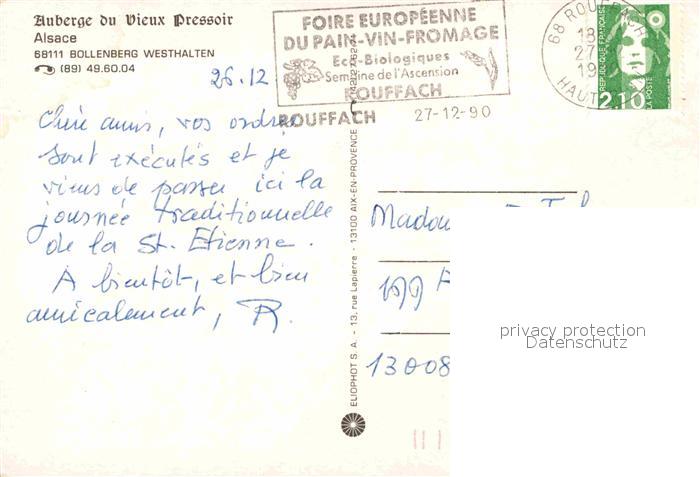 Auberge du Vieux Pressoir
Alsace
68111 BOLLENBERG WESTHALTEN
(89) 49.60.04
26.12
FOIRE EUROPÉENNE
DU PAIN-VIN-FROMAGE
Eco-Biologiques
Semaine de l'Ascension
ROUFFACH
ROUFFACH 27-12-90
68 ROUFFACH
18
27
19
HAUT
RÉPUBLIQUE FRANÇAISE
2,10
LA POSTE
Chers amis, vos ordres
sont exécutés et je
viens de passer ici la
journée traditionnelle
de la St. Etienne.
A bientôt, et bien
amicalement, R.
ELIOPHOT S.A. - 13, rue Lapierre - 13100 AIX-EN-PROVENCE
Madou
199
13008
privacy protection
Datenschutz